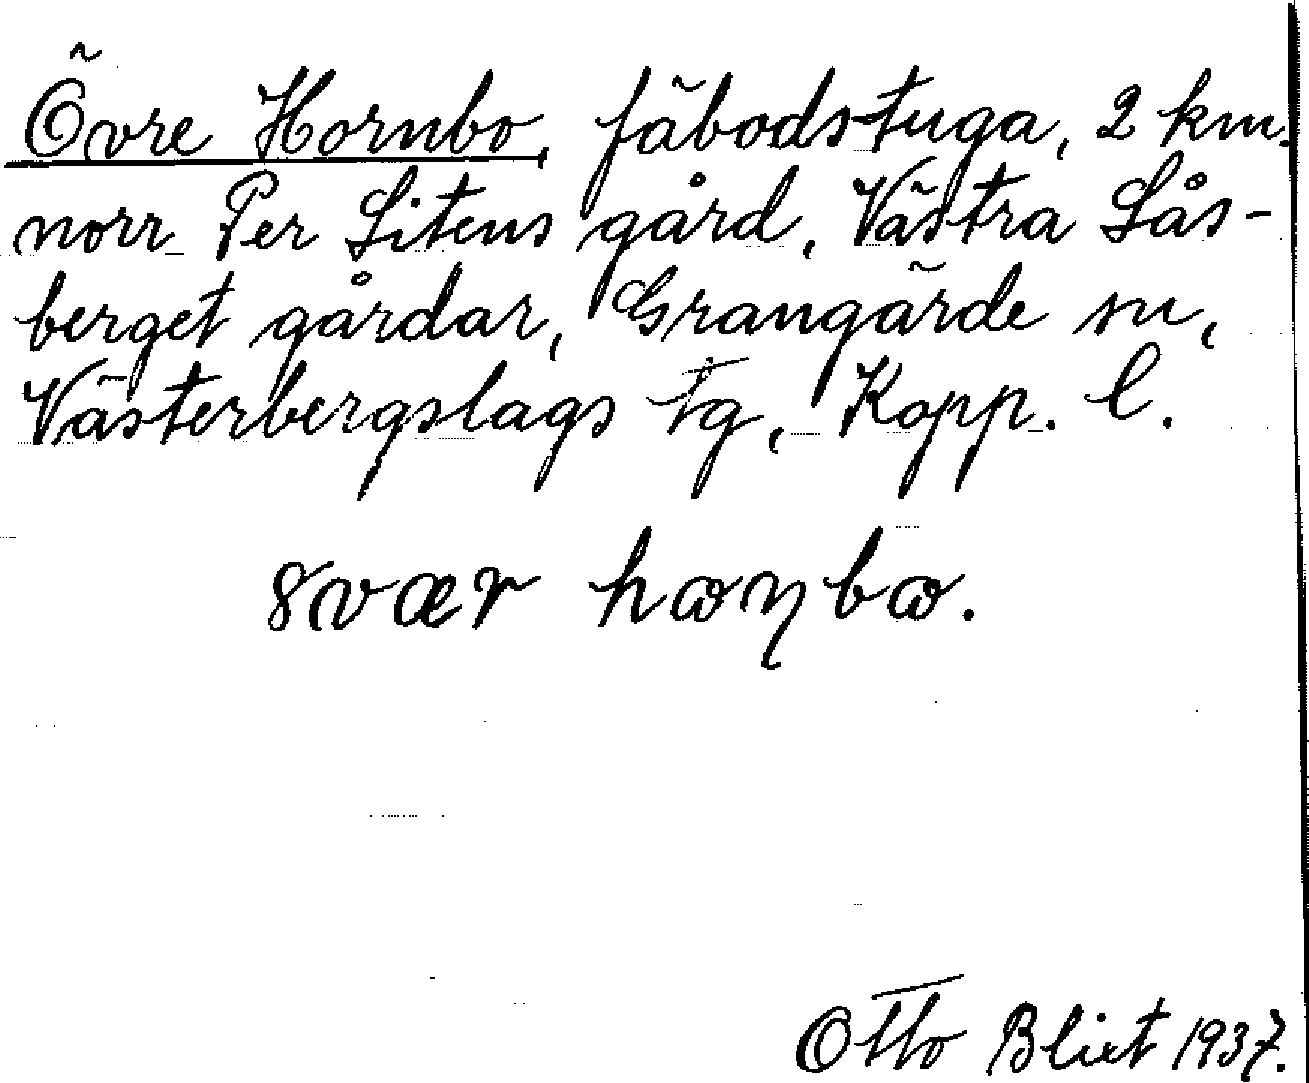 Övre Hornbo, fäbodstuga, 2 km.
norr Per Litens gård, Västra Lås-
berget gårdar, Grangärde sn,
Västerbergslags tg, Kopp. l.
hɷɳbɷ.
Otto Blixt 1937.